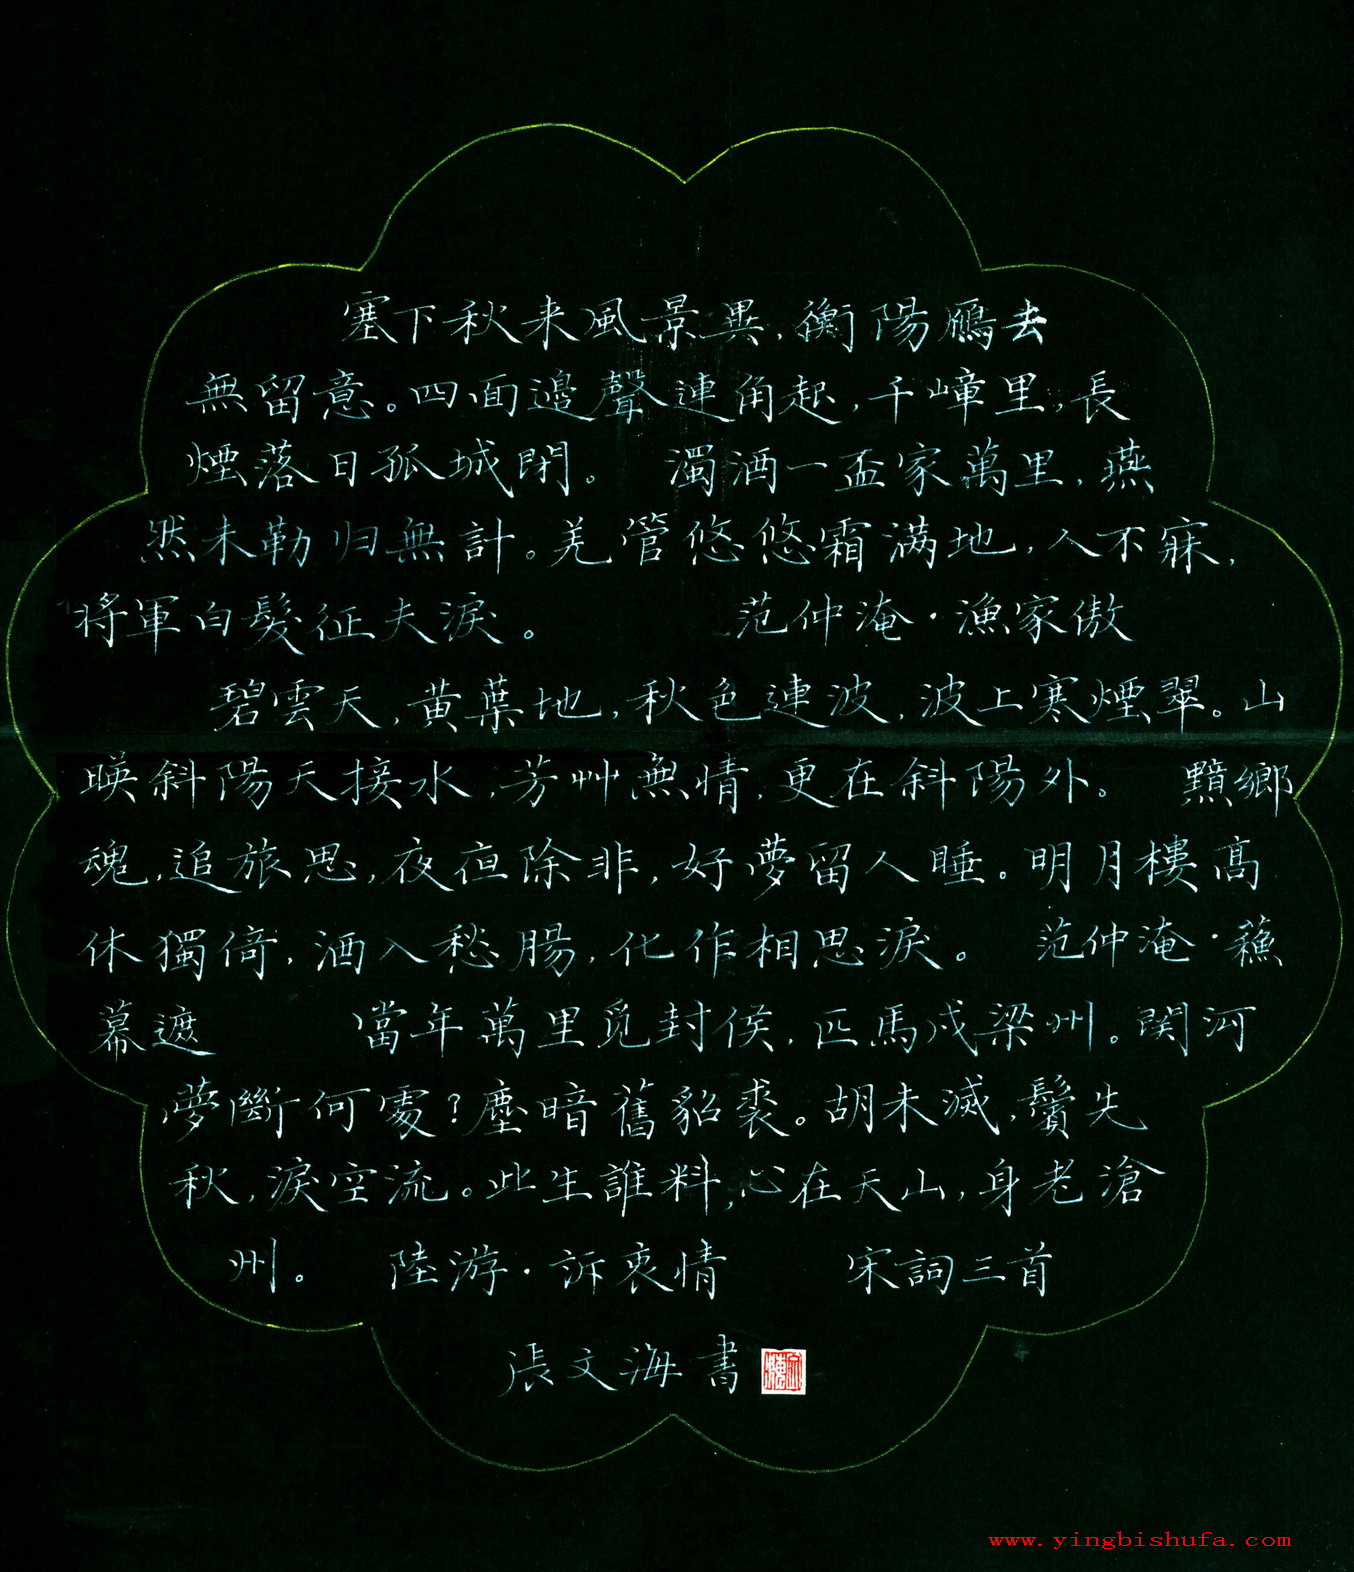 塞下秋来風景異，衡陽鴈去
無留意。四面邉聲連角起，千嶂里，長
煙落日孤城閉。　濁酒一盃家萬里，燕
然未勒归無計。羌管悠悠霜满地，人不寐，
將軍白髮征夫淚。　范仲淹·漁家傲
碧雲天，黄葉地，秋色連波，波上寒煙翠。山
暎斜陽天接水，芳艸無情，更在斜陽外。　黯鄉
魂，追旅思，夜夜除非，好夢留人睡。明月樓高
休獨倚，酒入愁腸，化作相思淚。　范仲淹·蘇
幕遮　當年萬里觅封侯，匹馬戍梁州。関河
夢斷何處？塵暗舊貂裘。胡未滅，鬢先
秋，淚空流。此生誰料，心在天山，身老滄
州。　陸游·訴衷情　宋詞三首
張文海書
www.yingbishufa.com